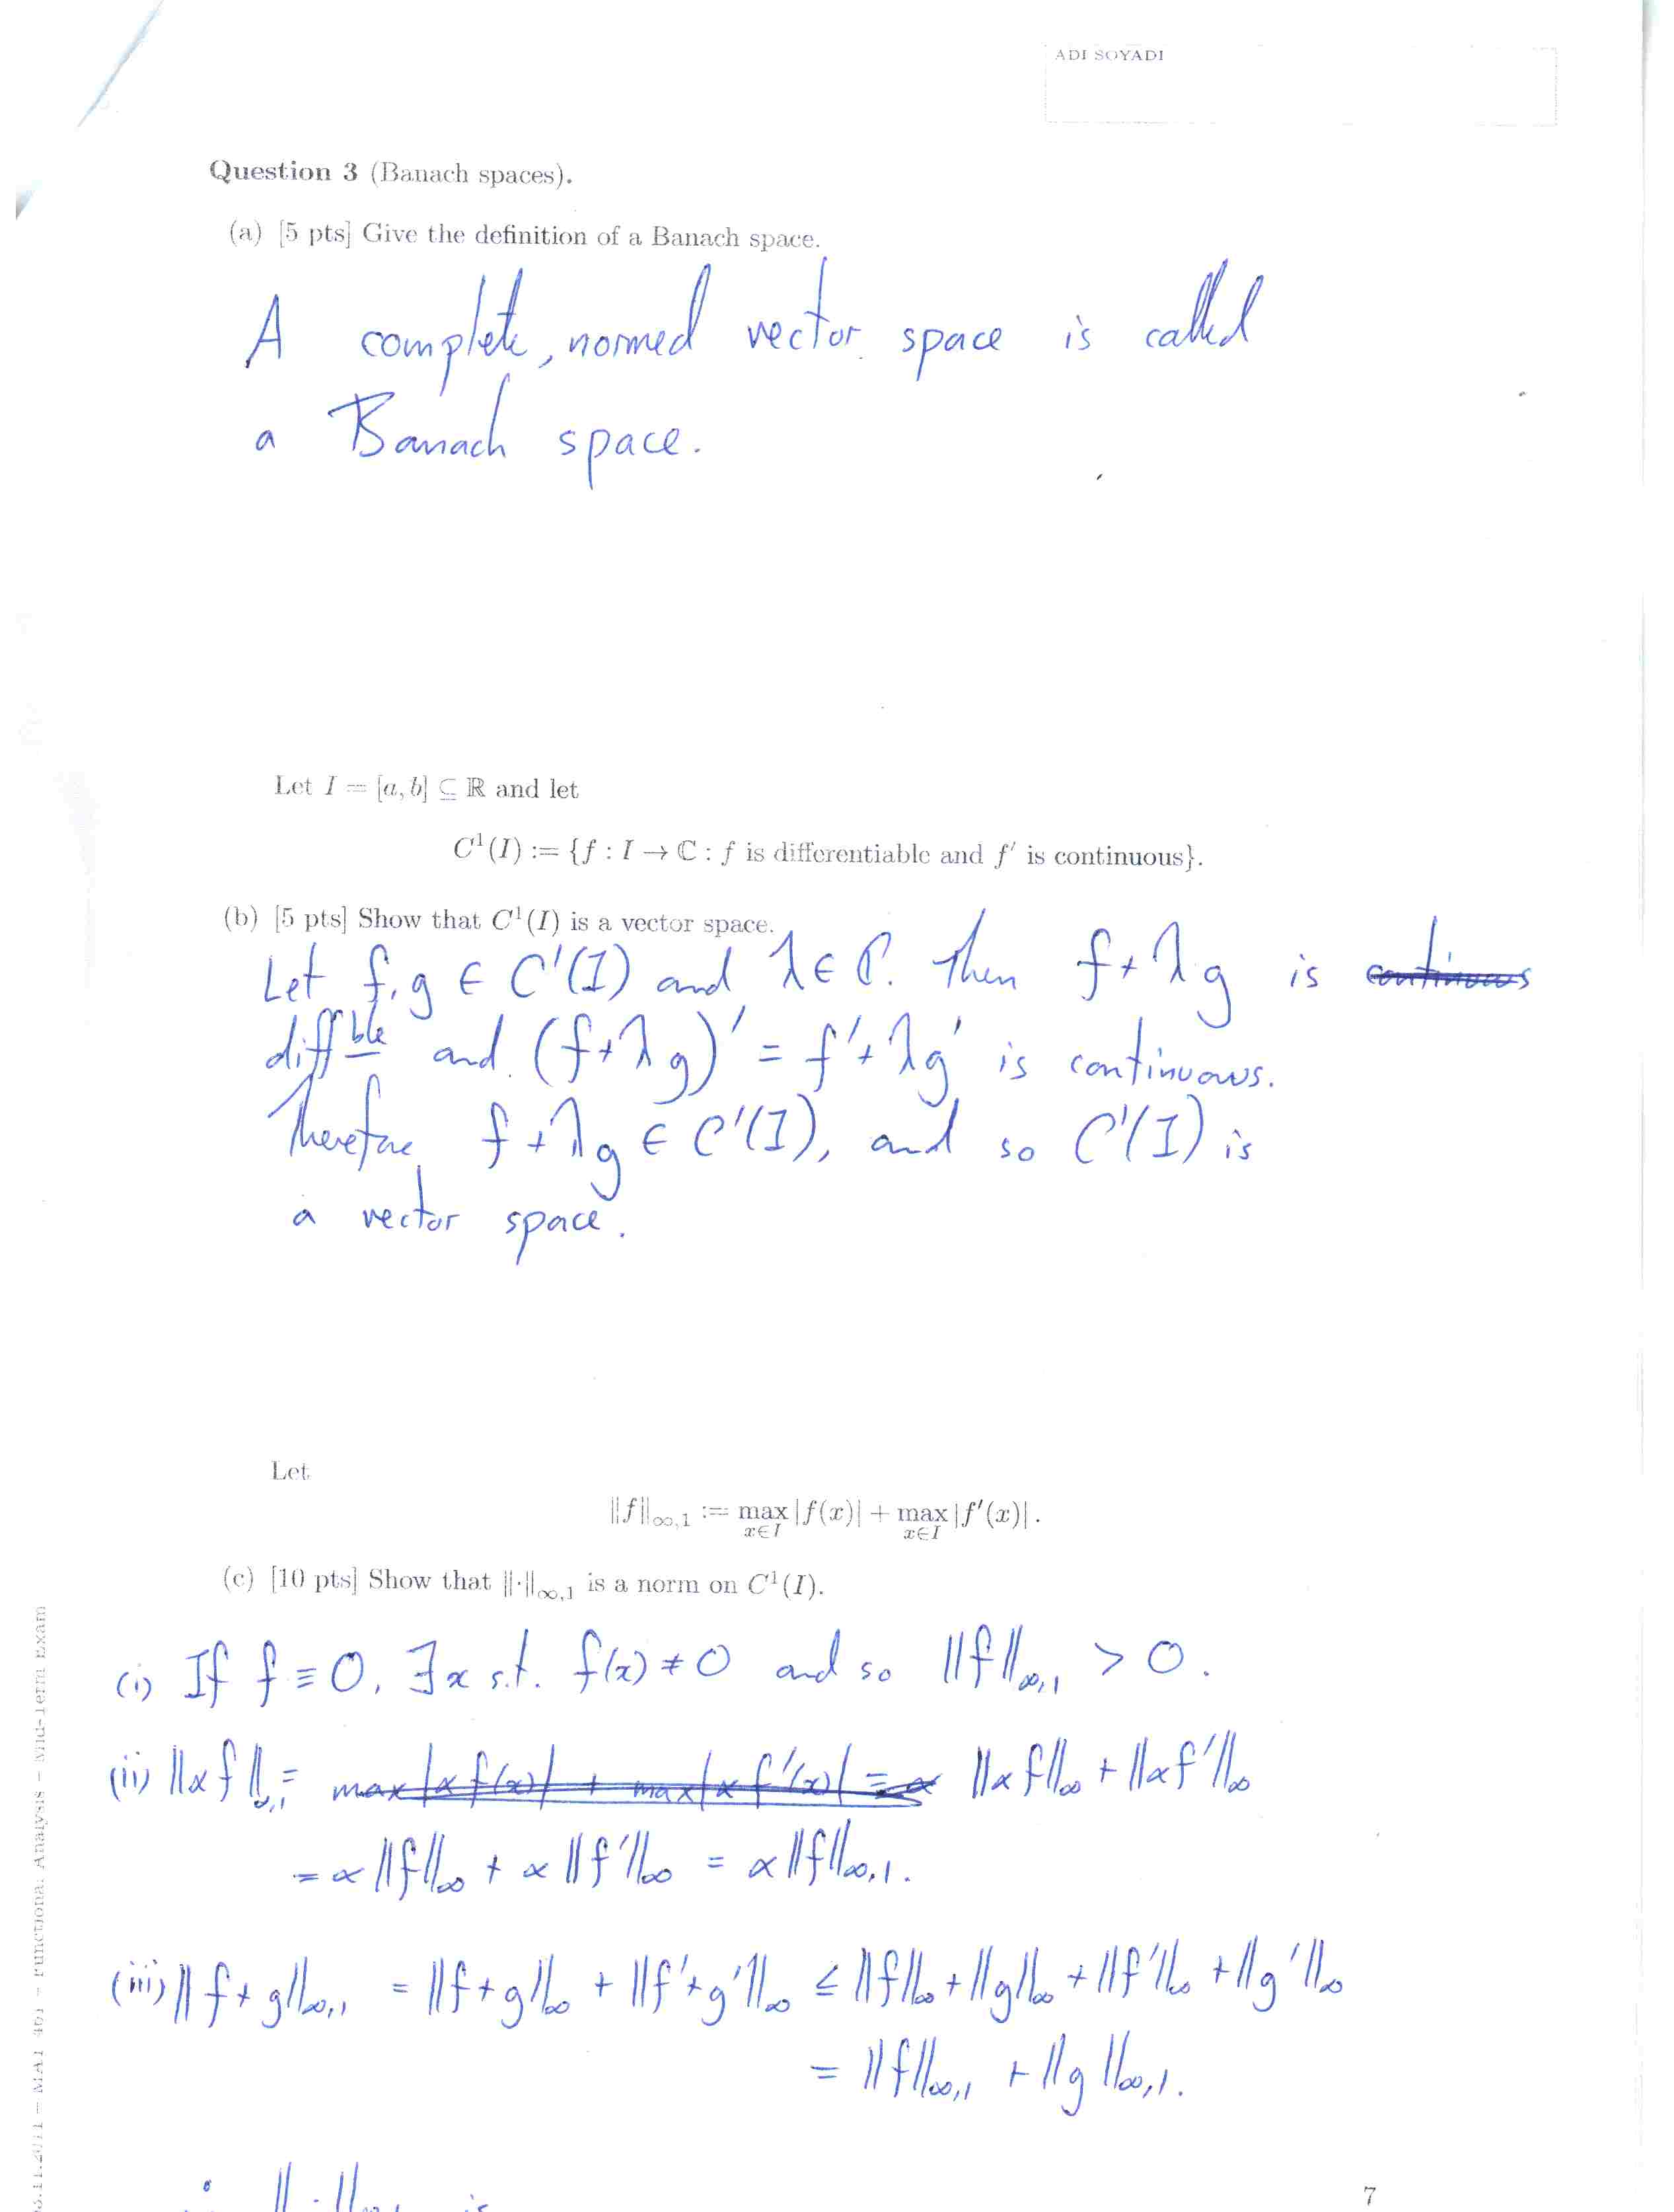 ADI SOYADI
Question 3 (Banach spaces).
(a) [5 pts] Give the definition of a Banach space.
A complete, normed vector space is called
a Banach space.
Let I = [a, b] ⊆ ℝ and let
C¹(I) := {f : I → ℂ : f is differentiable and f′ is continuous}.
(b) [5 pts] Show that C¹(I) is a vector space.
Let f, g ∈ C¹(I) and λ ∈ ℂ. Then f + λg is continuous
diffble and (f + λg)′ = f′ + λg′ is continuous.
Therefore f + λg ∈ C¹(I), and so C¹(I) is
a vector space.
Let
‖f‖∞,1 := max x∈I |f(x)| + max x∈I |f′(x)|.
(c) [10 pts] Show that ‖·‖∞,1 is a norm on C¹(I).
(i) If f ≡ 0, ∃x s.t. f(x) ≠ 0 and so ‖f‖∞,1 > 0.
(ii) ‖αf‖∞,1 = max|αf(x)| + max|αf′(x)| = α ‖αf‖∞ + ‖αf′‖∞
= α‖f‖∞ + α‖f′‖∞ = α‖f‖∞,1.
(iii) ‖f + g‖∞,1 = ‖f + g‖∞ + ‖f′ + g′‖∞ ≤ ‖f‖∞ + ‖g‖∞ + ‖f′‖∞ + ‖g′‖∞
= ‖f‖∞,1 + ‖g‖∞,1.
7
.11.2011 – MAT 461 – Functional Analysis – Mid-Term Exam